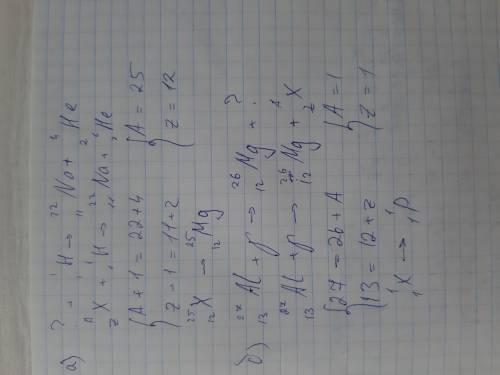 а) ? + ¹₁H → ²²₁₁Na + ⁴₂He
ᴬ_Z X + ¹₁H → ²²₁₁Na + ⁴₂He
{A + 1 = 22 + 4 {A = 25
{Z - 1 = 11 + 2 {Z = 12
²⁵₁₂X → ²⁵₁₂Mg
б) ²⁷₁₃Al + γ → ²⁶₁₂Mg + ?
²⁷₁₃Al + γ → ²⁶₁₂Mg + ᴬ_Z X
{27 = 26 + A {A = 1
{13 = 12 + Z {Z = 1
¹₁X → ¹₁p